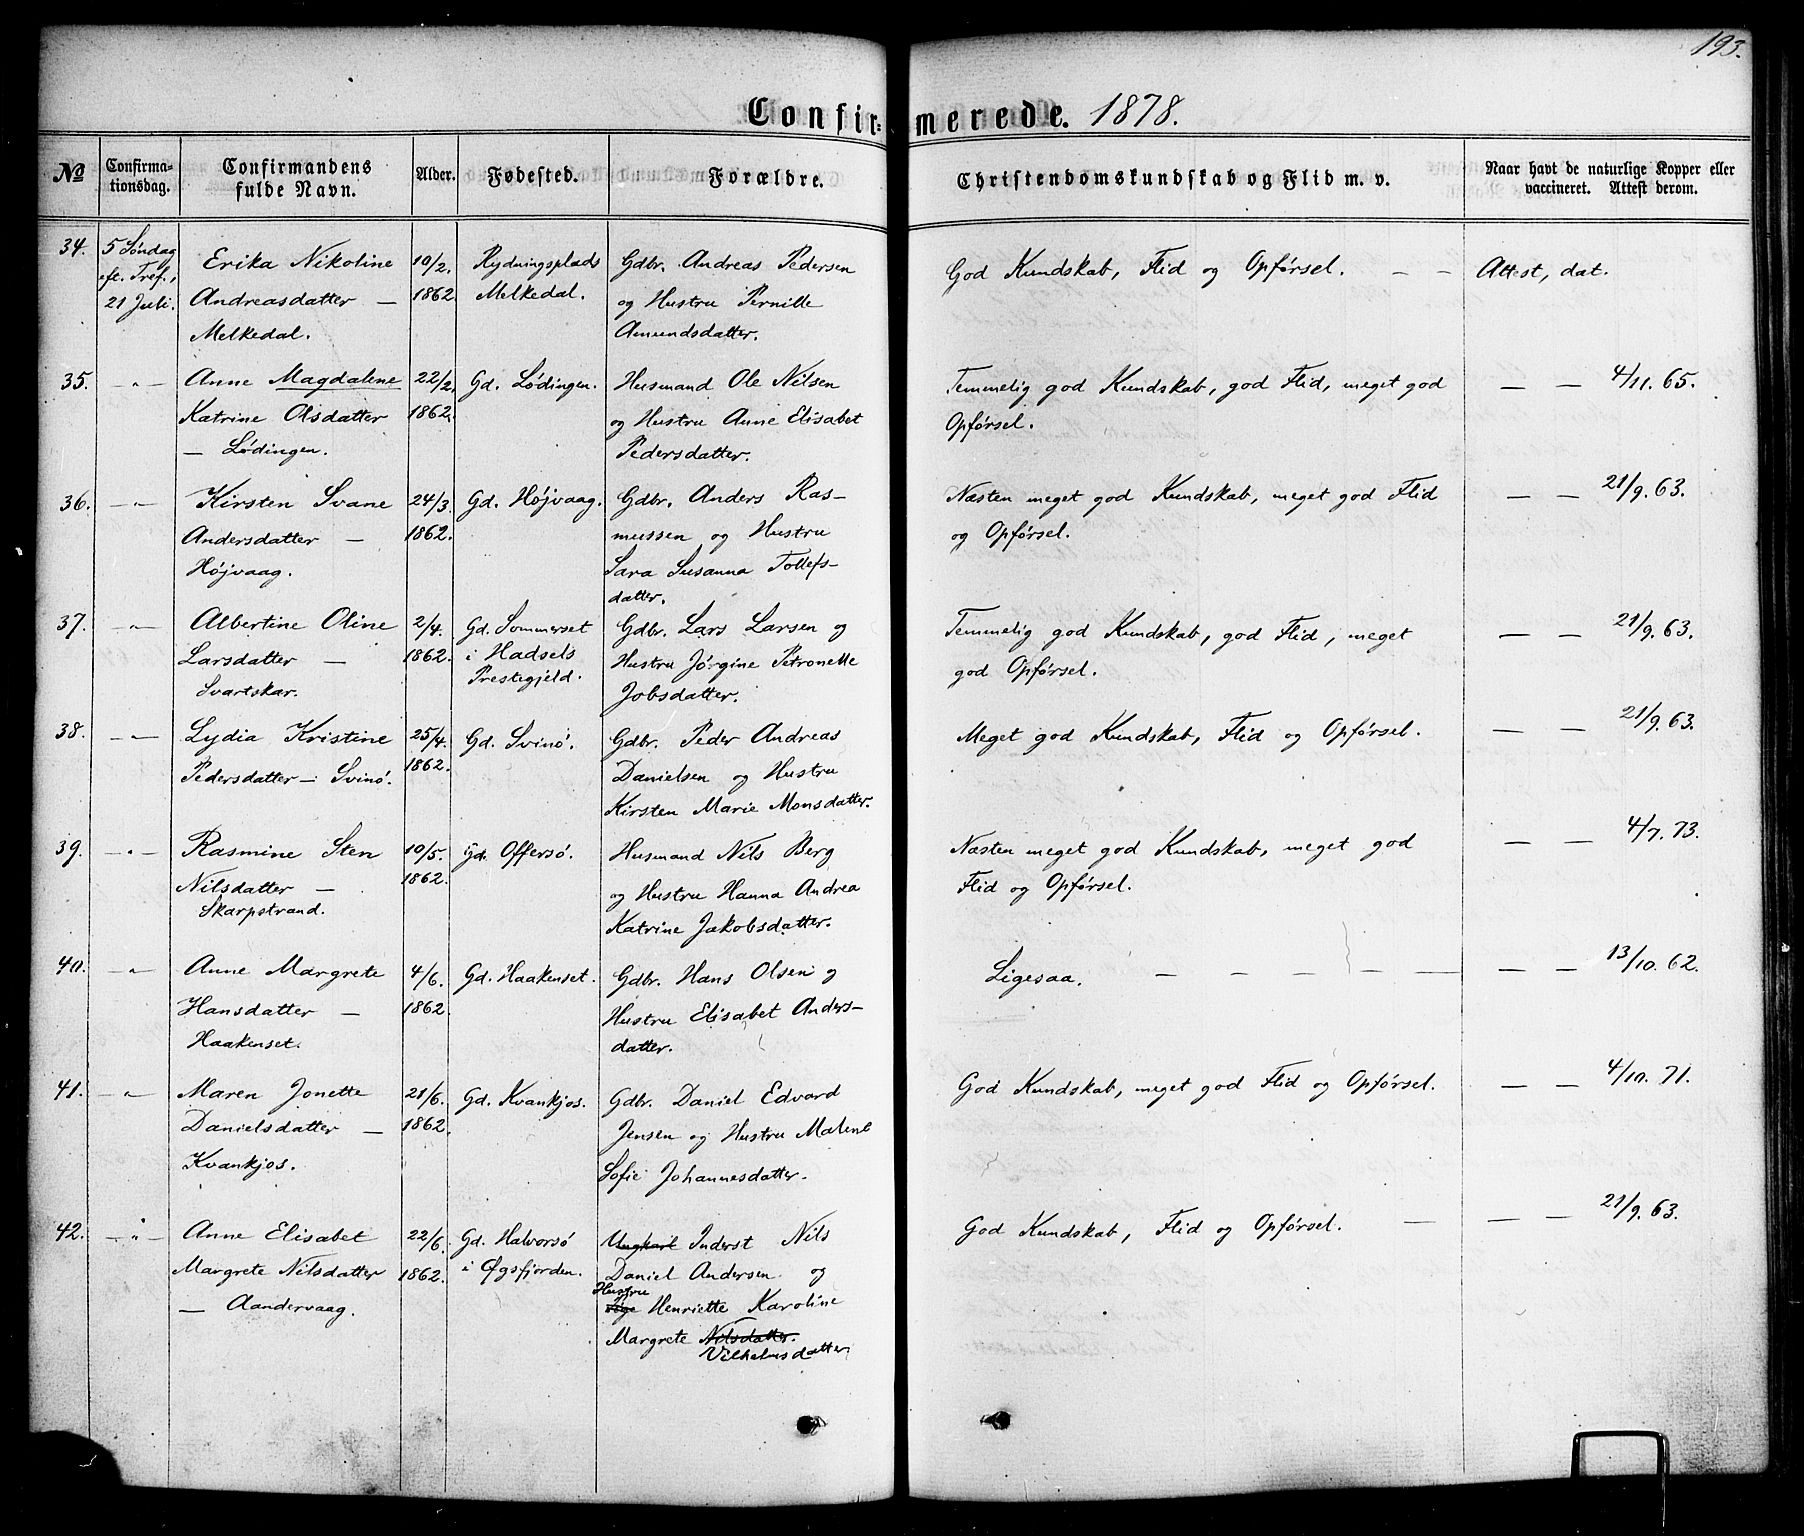 193.
Confirmerede. 1878.
No
Confirmationsdag.
Confirmandens fulde Navn.
Alder.
Fødested.
Forældre.
Christendomskundskab og Flid m. v.
Naar havt de naturlige Kopper eller vaccineret. Attest derom.
34. 5 Søndag Erika Nikoline 10/2. Rydningsplads Gdbr. Andreas Pedersen God Kundskab, Flid og Opførsel. — — Attest, dat.
eft. Tref., Andreasdatter — 1862 Melkedal. og Hustru Pernille
21 Juli. Melkedal. Amundsdatter.
35. — " — Anne Magdalene 22/2. Gd. Lødingen. Husmand Ole Nilsen Temmelig god Kundskab, god Flid, meget god — — 4/11. 65.
Katrine Olsdatter 1862. og Hustru Anne Elisabet Opførsel.
— Lødingen. Pedersdatter.
36. — " — Kirsten Svane 24/3. Gd. Højvaag. Gdbr. Anders Ras- Næsten meget god Kundskab, meget god Flid — — 21/9. 63.
Andersdatter — 1862. mussen og Hustru og Opførsel.
Højvaag. Sara Susanna Tollefs-
datter.
37. — " — Albertine Oline 2/4. Gd. Sommerset Gdbr. Lars Larsen og Temmelig god Kundskab, god Flid, meget — — 21/9. 63.
Larsdatter — 1862. i Hadsels Hustru Jørgine Petronelle god Opførsel.
Svartskar. Prestegjeld. Jobsdatter.
38. — " — Lydia Kristine 25/4. Gd. Svinø. Gdbr. Peder Andreas Meget god Kundskab, Flid og Opførsel. — — 21/9. 63.
Pedersdatter — Svinø. 1862. Danielsen og Hustru
Kirsten Marie Monsdatter.
39. — " — Rasmine Sten 10/5. Gd. Offersø. Husmand Nils Berg Næsten meget god Kundskab, meget god — — 4/7. 73.
Nilsdatter — 1862. og Hustru Hanna Andrea Flid og Opførsel.
Skarpstrand. Katrine Jakobsdatter.
40. — " — Anne Margrete 4/6. Gd. Haakenset. Gdbr. Hans Olsen og Ligesaa. — — — — — — — 13/10. 62.
Hansdatter — 1862. Hustru Elisabet Anders-
Haakenset. datter.
41. — " — Maren Jonette 21/6. Gd. Kvankjos. Gdbr. Daniel Edvard God Kundskab, meget god Flid og Opførsel. — — 4/10. 71.
Danielsdatter — 1862. Jensen og Hustru Malene
Kvankjos. Sofie Johannesdatter.
42. — " — Anne Elisabet 22/6. Gd. Halvorsø Ungkarl Inderst Nils God Kundskab, Flid og Opførsel. — — — 21/9. 63.
Margrete Nilsdatter 1862. i Øgsfjorden. Daniel Andersen og
— Aandervaag. Hustru Henriette Karoline
Margrete Nilsdatter.
Vilhelmsdatter.